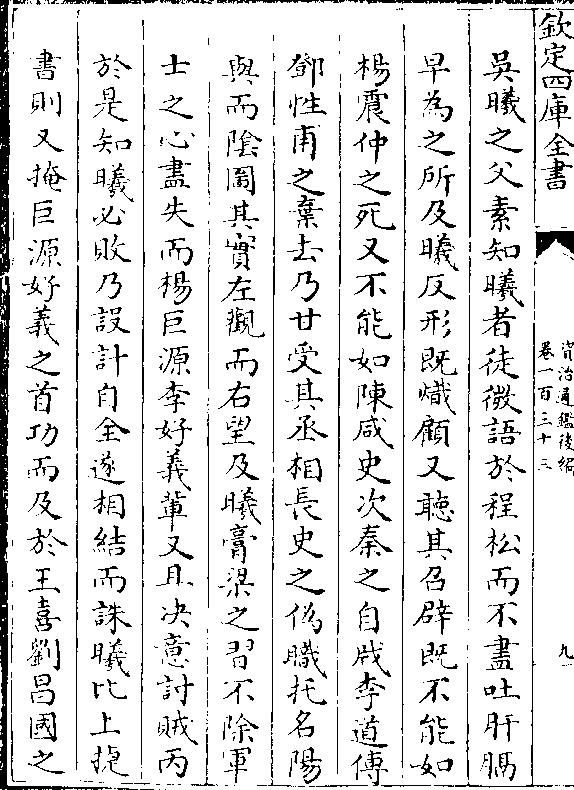 欽定四庫全書
資治通鑑後編
卷一百三十三
九
吳曦之父素知曦者徒微語於程松而不盡吐肝膈
早為之所及曦反形既熾顧又聽其召辟既不能如
楊震仲之死又不能如陳咸史次秦之自戕李道傳
鄧性甫之棄去乃甘受其丞相長史之偽職托名陽
與而陰圖其實左觀而右望及曦膏粱之習不除軍
士之心盡失而楊巨源李好義輩又且决意討賊丙
於是知曦必敗乃設計自全遂相結而誅曦比上捷
書則又掩巨源好義之首功而及於王喜劉昌國之